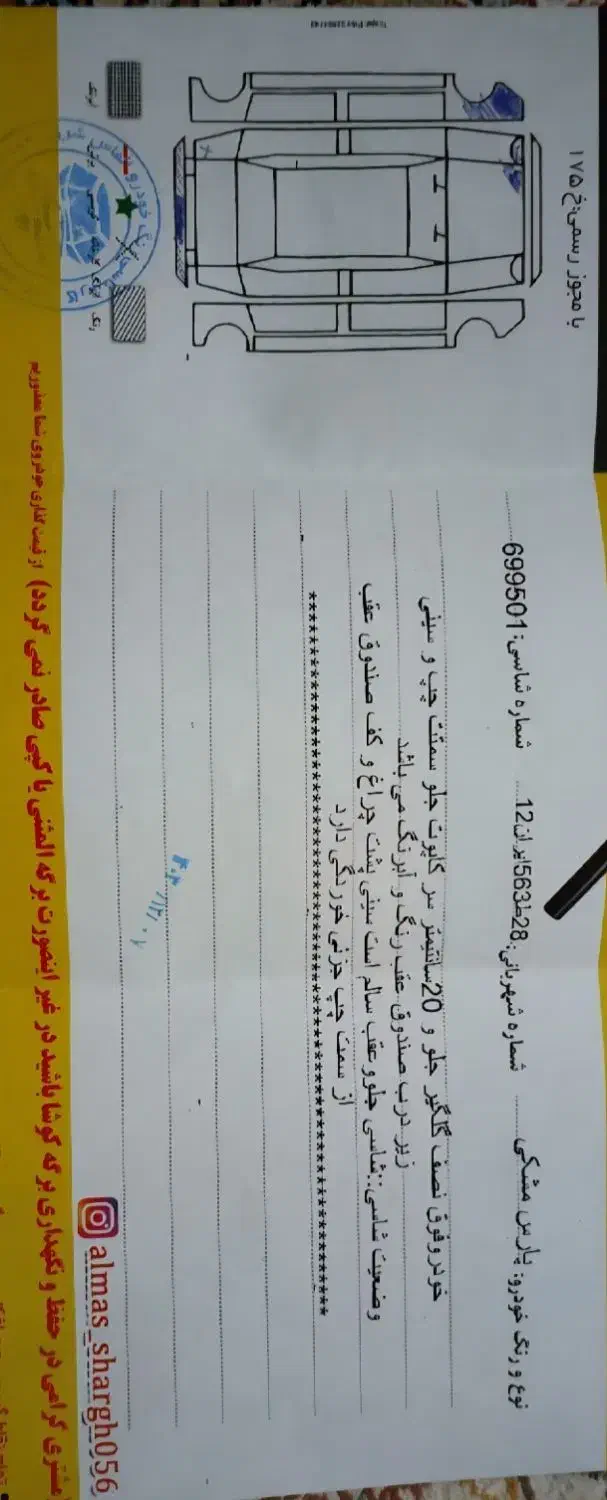 با مجوز رسمی: خ ۱۷۵
نوع و رنگ خودرو: پارس مشکی شماره شهربانی: 28ط563ایران12 شماره شاسی: 699501
خودروفوق نصف گلگیر جلو و 20سانتیمتر سر کاپوت جلو سمت چپ و سینی
زیر درب صندوق عقب رنگ و آبرنگ می باشد
وضعیت شاسی::شاسی جلو و عقب سالم است سینی پشت چراغ و کف صندوق عقب
از سمت چپ جزئی خوردگی دارد
مشتری گرامی در حفظ و نگهداری برگه کوشا باشید در غیر اینصورت برگه المثنی یا کپی صادر نمی گردد) از قیمت گذاری خودروی شما معذوریم
almas_shargh056
رنگ